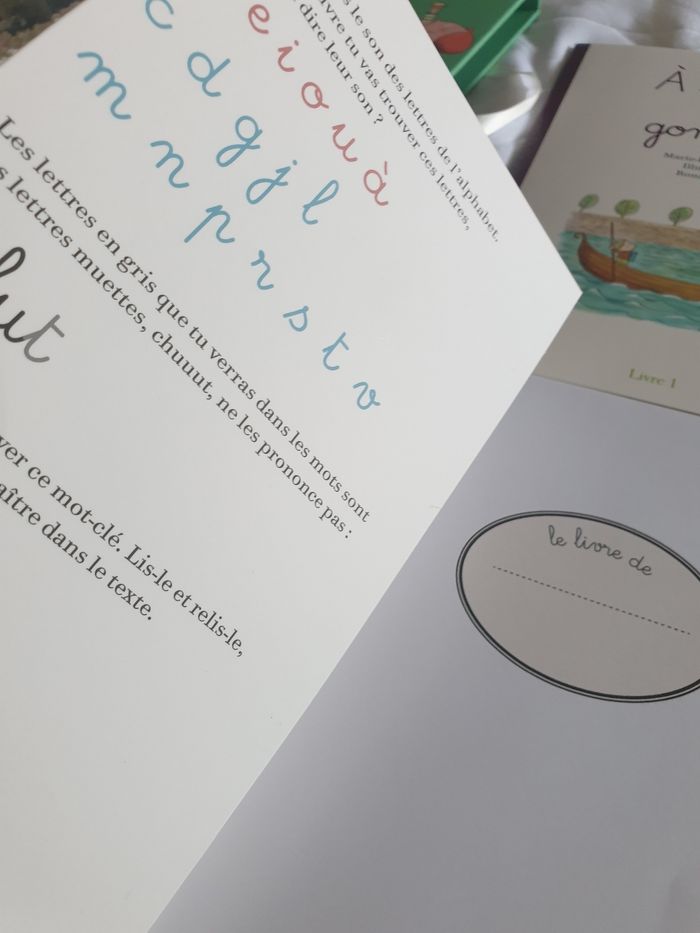 le son des lettres de l'alphabet.
tu vas trouver ces lettres,
dire leur son ?
e i o u à
c d g j l
m n p r s t v
Les lettres en gris que tu verras dans les mots sont
lettres muettes, chuuut, ne les prononce pas :
ut
ce mot-clé. Lis-le et relis-le,
dans le texte.
À
Livre 1
le livre de